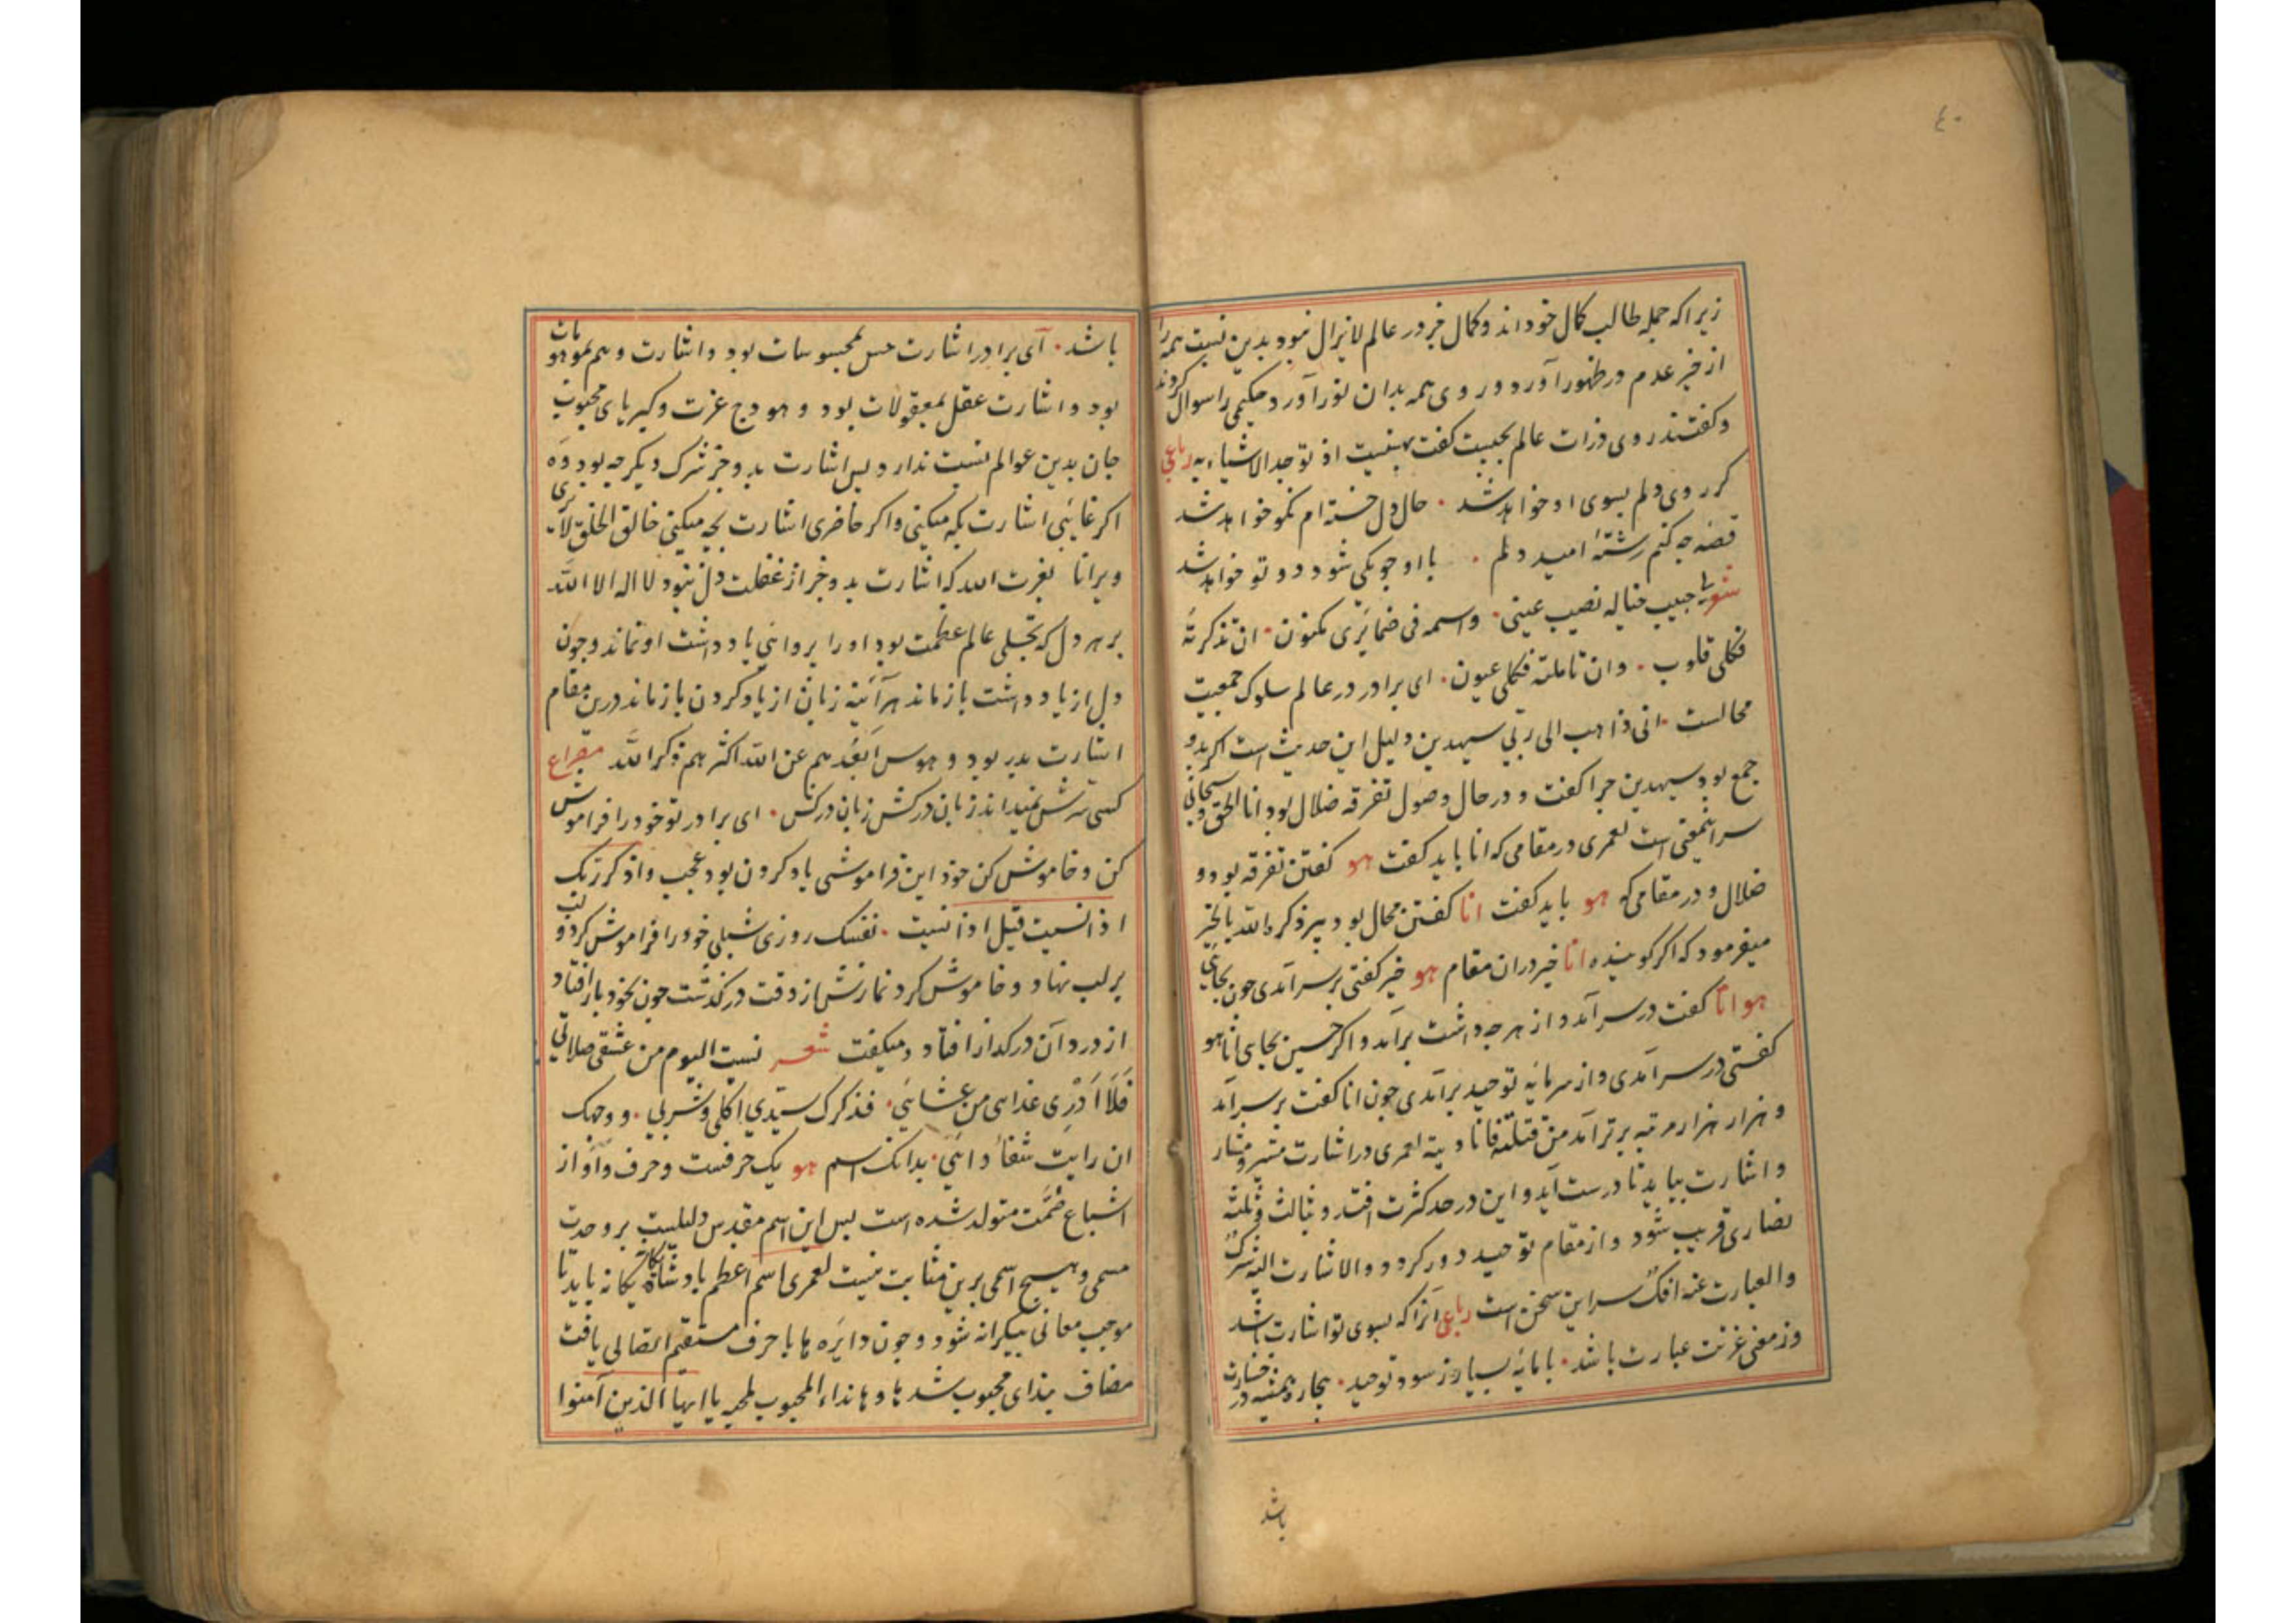 ٤٠
زیرا که جمله طالب کمال خوداند و کمال خر در عالم لایزال نبود بدین نسبت همه را
از خبر عدم در ظهور آورد و روی همه بدان نور آورد حکیمی را سوال کردند
و کفتند روی ذرات عالم بجیست کفت بهنیستی اذ توجد الاشیاء به رباعی
کر روی دلم بسوی او خواهد شد . حال دل خسته ام نکو خواهد شد
قصه جه کنم رشتهٔ امید دلم . با او جو یکی شود دو تو خواهد شد
شعر لی حبیب خیاله نصیب عینی . واسمه فی ضمائری مکنون . ان تذکرته
فکلی قلوب . وان تاملته فکلی عیون . ای برادر در عالم سلوک جمعیت
محالست . انی ذاهب الی ربی سیهدین دلیل این حدیث است اکر بدو
جمع بود سیهدین جرا کفت و در حال وصول تفرقه ضلال بود انا الحق و سبحانی
سر اینمعنی است لعمری در مقامی که انا باید کفت هو کفتن تفرقه بود و
ضلال و در مقامی که هو باید کفت انا کفتن محال بود پیر ذکره الله بالخیر
میفرمود که اکر کوینده انا خیر دران مقام هو خیر کفتی بر سر آمدی جون بجای
هو انا کفت در سر آمد و از هر جه داشت برآمد و اکر حسین بجای انا هو
کفتی در سر آمدی و از سرمایه توحید برآمدی جون انا کفت بر سر آمد
و هزار هزار مرتبه برتر آمد من قتلته فانا دیته لعمری در اشارت مشیر و مشار
و اشارت بباید تا درست آید و این در حد کثرت افتد و ثالث ثلثه
نصاری قریب شود و از مقام توحید دور کردد و الاشارت الیه شرک
والعبارت عنه افک سر این سخن است رباعی آنرا که بسوی تو اشارت باشد
وز معنی عزتت عبارت باشد . با مایهٔ بسیار ز سود توحید . بیجاره همیشه در خسارت
باشد
باشد . آی برادر اشارت حس بمحسوسات بود و اشارت وهم بموهومات
بود و اشارت عقل بمعقولات بود و هودج عزت و کبریای محبوب
جان بدین عوالم نسبت ندارد پس اشارت بدو جز شرک دیکر جه بود وه
اکر غایبی اشارت بکه میکنی و اکر حاضری اشارت بجه میکنی خالق الخلق لا تری
ویرانا بعزت الله که اشارت بدو جز از غفلت دل نبود لا اله الا الله
بر هر دل که تجلی عالم عظمت بود او را پروای یاد داشت او نماند و جون
دل از یاد داشت بازماند هرآئینه زبان از یاد کردن بازماند درین مقام
اشارت بدو بود و هوس ابعدهم عن الله اکثرهم ذکر الله مصراع
کسی سرش نمیداند زبان درکش زبان درکش . ای برادر تو خود را فراموش
کن و خاموش کن خود این فراموشی یاد کردن بود عجب واذکر ربک
اذا نسیت قیل اذا نسیت . نفسک روزی شبلی خود را فراموش کرد و لب
بر لب نهاد و خاموش کرد نمازش از وقت درکذشت جون بخود باز افتاد
از درد آن در کداز افتاد و میکفت شعر نسیت الیوم من عشقی صلاتی
فَلَا اَدْرِی غدائی من عشائی . فذکرک سیّدی اکلی و شربی . و وجهک
ان رایت شفاء دائی . بدانک اسم هو یک حرفست و حرف واو از
اشباع ضمّت متولد شده است پس این اسم مقدس دلیلیست بر وحدت
مسمی و هیج اسمی برین مثابت نیست لعمری اسم اعظم پادشاه یکانه یکانه باید تا
موجب معانی بیکرانه شود و جون دایره ها با حرف مستقیم اتصالی یافت
مضاف بندای محبوب شد ها و هانداء المحبوب لمحبه یا ایها الذین آمنوا